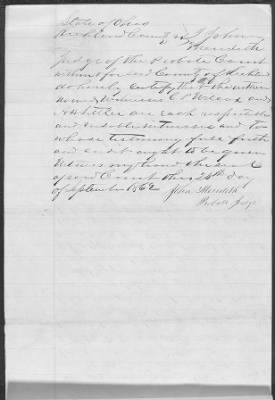 State of Ohio
Richland County ss I John
Meredith
Judge of the Probate Court
within & for said County of Richland
do hereby certify that the within
named Witnesses C P Wilcox and
Whitter are each respectable
and credible witnesses and to
whose testimony full faith
and credit ought to be given
Witness my hand & the seal
of said Court this 24th day
of September 1862
John Meredith
Probate Judge